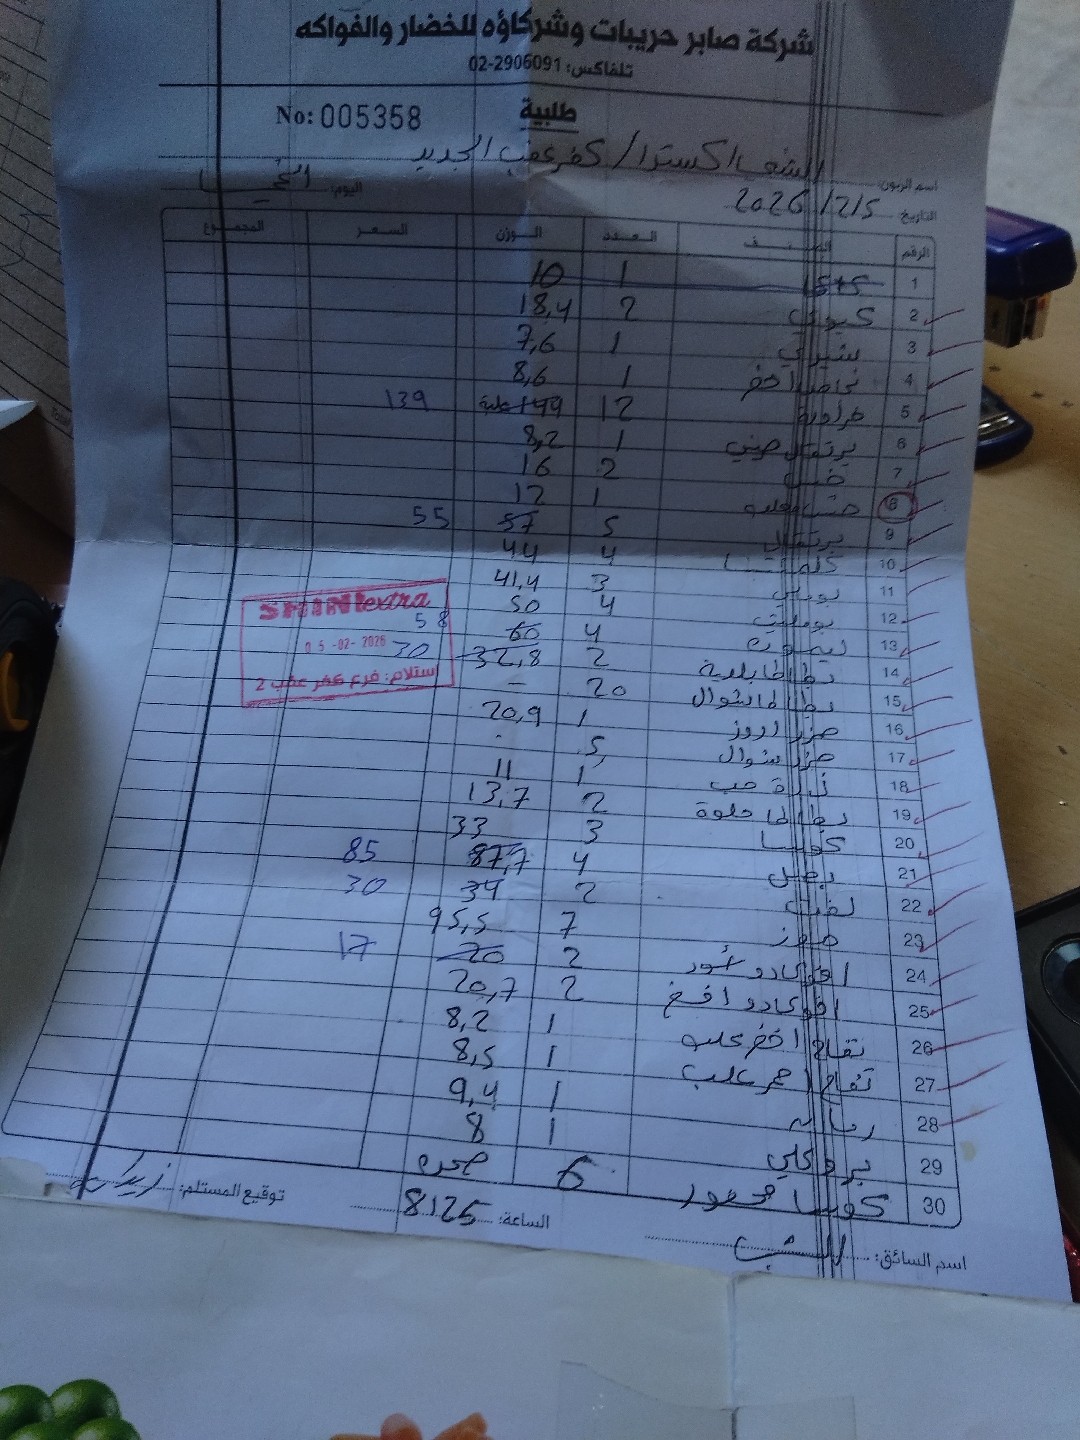 شركة صابر حريبات وشركاؤه للخضار والفواكه
تلفاكس: 02-2906091
طلبية
No: 005358
اسم الزبون: الشني اكسترا / كفر عقب الجديد
التاريخ 2026/2/5 اليوم:
الرقم الصنف العدد الوزن السعر المجموع
1 1 10
2 كيوي 2 18,4
3 شيري 1 7,6
4 1 8,6
5 فراولة 12 149 علبة 139
6 برتقال صيني 1 8,2
7 خس 2 16
8 1 12
9 برتقال 5 57 55
10 كلمنتينا 4 44
11 بوملي 3 41,4
12 4 50
13 ليمون 4 60 58
14 بطاطا بلدية 2 32,8 30
15 بطاطا شوال 20 -
16 جزر اروز 1 20,9
17 جزر شوال 5
18 ذرة حب 1 11
19 بطاطا حلوة 2 13,7
20 كوسا 3 33
21 بصل 4 87,7 85
22 لفت 2 34 30
23 موز 7 95,5
24 افوكادو 2 20 17
25 افوكادو 2 20,7
26 تفاح اخضر علب 1 8,2
27 تفاح احمر علب 1 8,5
28 1 9,4
29 بروكلي 1 8
30 كوسا 6
SHINI extra
05-02-2026
ستلام: فرع كفر عقب 2
اسم السائق: الساعة: 8:25 توقيع المستلم: